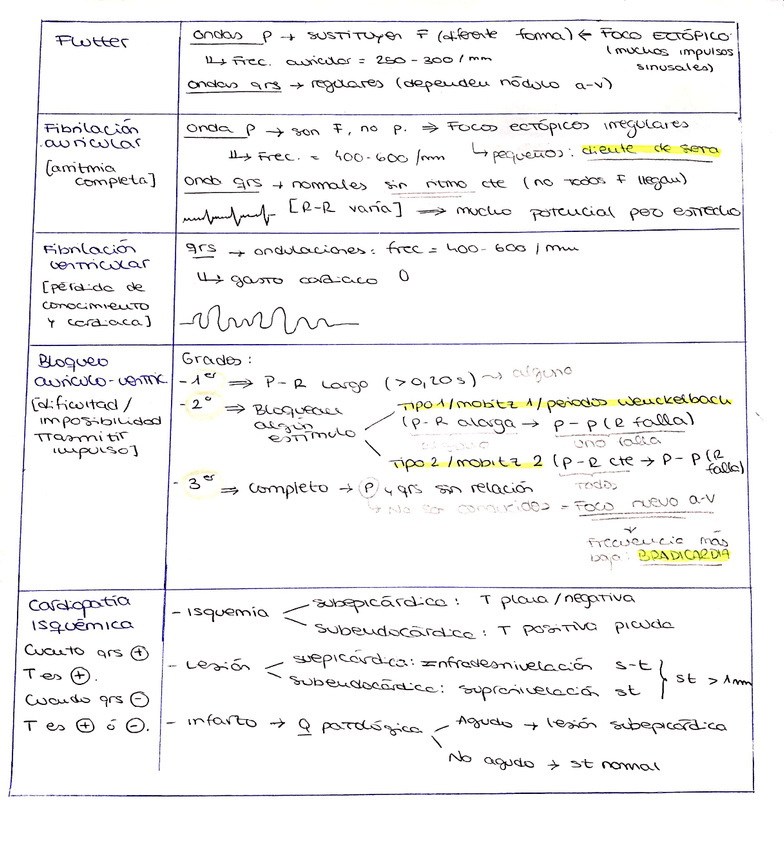 Flutter
ondas P → sustituyen F (diferente forma) ← FOCO ECTÓPICO
(muchos impulsos
sinusales)
↳ Frec. auricular = 250-300/mm
ondas qrs → regulares (dependen nódulo a-v)
Fibrilación
auricular
[arritmia
completa]
Onda P → son F, no P. ⇒ Focos ectópicos irregulares
↳ Frec. = 400-600/mm ↳ pequeños: diente de sierra
Onda qrs → normales sin ritmo cte (no todos F llegan)
[R-R varía] ⇒ mucho potencial pero estrecho
Fibrilación
ventricular
[pérdida de
conocimiento
y cardiaca]
qrs → ondulaciones: frec = 400-600/mm
↳ gasto cardiaco 0
Bloqueo
auriculo-ventric
[dificultad/
imposibilidad
trasmitir
impulso]
Grados:
- 1er ⇒ P-R largo (>0,20s) ~ alguno
- 2º ⇒ Bloquean
algún
estímulo
Tipo 1/mobitz 1/periodos Wenckelbach
(P-R alarga → P-P (R falla)
uno falla
Tipo 2/mobitz 2 (P-R cte → P-P (R
falla)
Todos
- 3er ⇒ completo → P y qrs sin relación
↳ No son conducidos = Foco nuevo a-v
Frecuencia más
baja: BRADICARDIA
Cardiopatía
isquémica
Cuanto qrs ⊕
T es ⊕.
Cuando qrs ⊖
T es ⊕ ó ⊖.
- Isquemia
subepicárdica: T plana/negativa
subendocárdica: T positiva picuda
- Lesión
suepicárdica: Infradesnivelación s-t
subendocárdica: supranivelación st
st > 1mm
- infarto → Q patológica
Agudo → lesión subepicárdica
No agudo → st normal